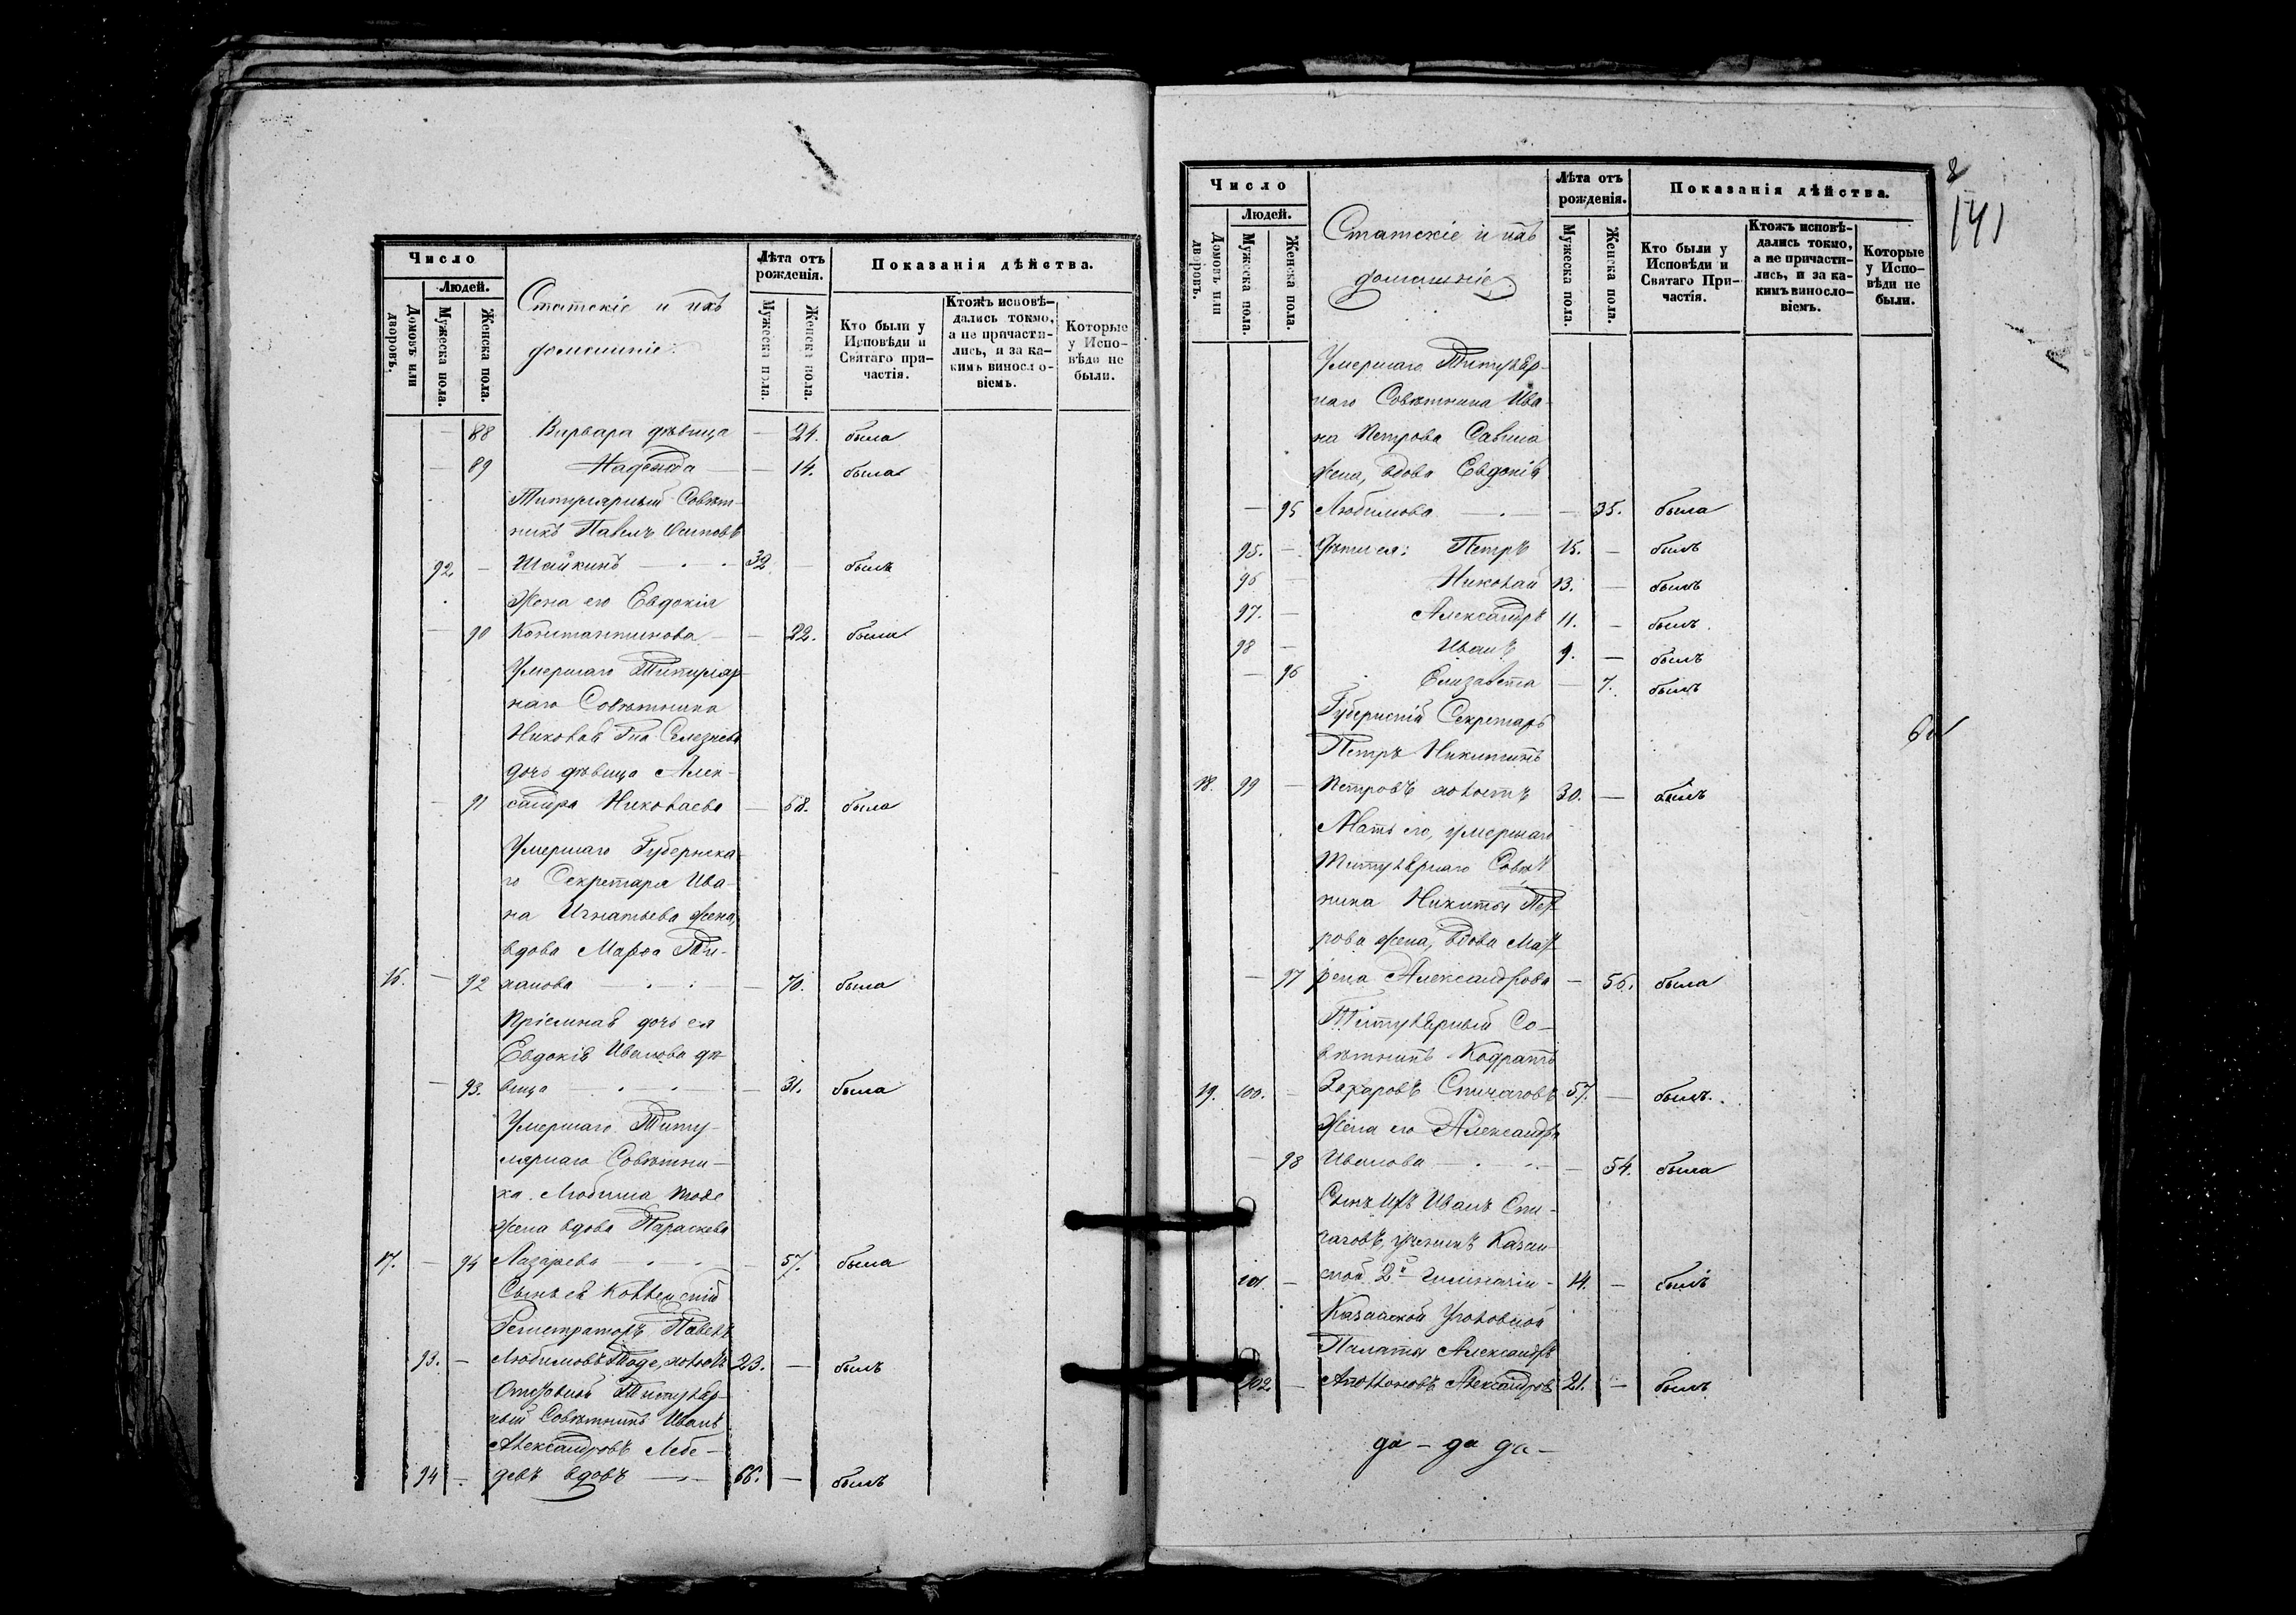 Число
Людей.
Домовъ или дворовъ.
Мужеска пола.
Женска пола.
Статскіе и ихъ
домашніе.
Лѣта отъ рожденія.
Мужеска пола.
Женска пола.
Показанія дѣйства.
Кто были у Исповѣди и Святаго причастія.
Ктожъ исповѣдались токмо, а не причастились, и за какимъ винословіемъ.
Которые у Исповѣди не были.
— 88 Варвара дѣвица — 24. была
— 89 Надежда — — 14. была
Титулярный Совѣт-
никъ Павелъ Осиповъ
92. — Шайкинъ — 32 — былъ
Жена его Евдокія
— 90 Константинова — — 22. была
Умершаго Титуляр-
наго Совѣтника
Николая Селезнева
дочь дѣвица Алек-
— 91 сандра Николаева — 68. была
Умершаго Губернска-
го Секретаря Ива-
на Игнатьева жена,
вдова Марѳа Ти-
16. — 92 ханова — — 70. была
Пріемная дочь ея
Евдокія Иванова дѣ-
— 93. вица — — 31. была
Умершаго Титу-
лярнаго Совѣтни-
ка Любима Тоде
жена вдова Параскева
17. — 94 Лазарева — — 57. была
Сынъ ея Коллежскій
Регистраторъ Павелъ
93. — Любимовъ Тоде, холостъ 23. — былъ
Отставной Титуляр-
ный Совѣтникъ Иванъ
Александровъ Лебе-
94 — девъ вдовъ — 66. — былъ
8
141
Число
Людей.
Домовъ или дворовъ.
Мужеска пола.
Женска пола.
Статскіе и ихъ
домашніе.
Лѣта отъ рожденія.
Мужеска пола.
Женска пола.
Показанія дѣйства.
Кто были у Исповѣди и Святаго Причастія.
Ктожъ исповѣдались токмо, а не причастились, и за какимъ винословіемъ.
Которые у Исповѣди не были.
Умершаго Титуляр-
наго Совѣтника Ива-
на Петрова Савина
жена, вдова Евдокія
— 95 Любимова — — 35. была
95. — Дѣти ея: Петръ 15. — былъ
96 — Николай 13. — былъ
97. — Александръ 11. — былъ
98 — Иванъ 9. — былъ
— 96 Елизавета — 7. былъ
Губернскій Секретарь
Петръ Никитинъ
18. 99 — Петровъ холостъ 30. — былъ
Мать его, умершаго
Титулярнаго Совѣт-
ника Никиты Пет-
рова жена, вдова Мат-
— 97 рена Александрова — 56. была
Титулярный Со-
вѣтникъ Кодратъ
19. 100. — Захаровъ Спичаговъ 57. — былъ.
Жена его Александра
— 98 Иванова — — 54. была
Сынъ ихъ Иванъ Спи-
чаговъ, ученикъ Казан-
101. — ской 2й Гимназіи — 14. — былъ
Казанской Уголовной
Палаты Александръ
102. — Аполлоновъ Александровъ 21. — былъ
да — да да —